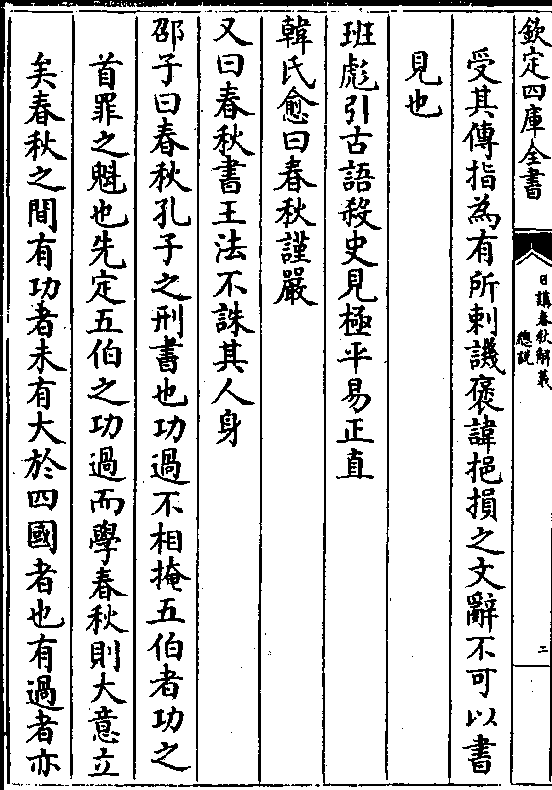 欽定四庫全書
日講春秋解義
總說
二
受其傳指為有所刺譏褒諱挹損之文辭不可以書
見也
班彪引古語殺史見極平易正直
韓氏愈曰春秋謹嚴
又曰春秋書王法不誅其人身
邵子曰春秋孔子之刑書也功過不相掩五伯者功之
首罪之魁也先定五伯之功過而學春秋則大意立
矣春秋之間有功者未有大於四國者也有過者亦